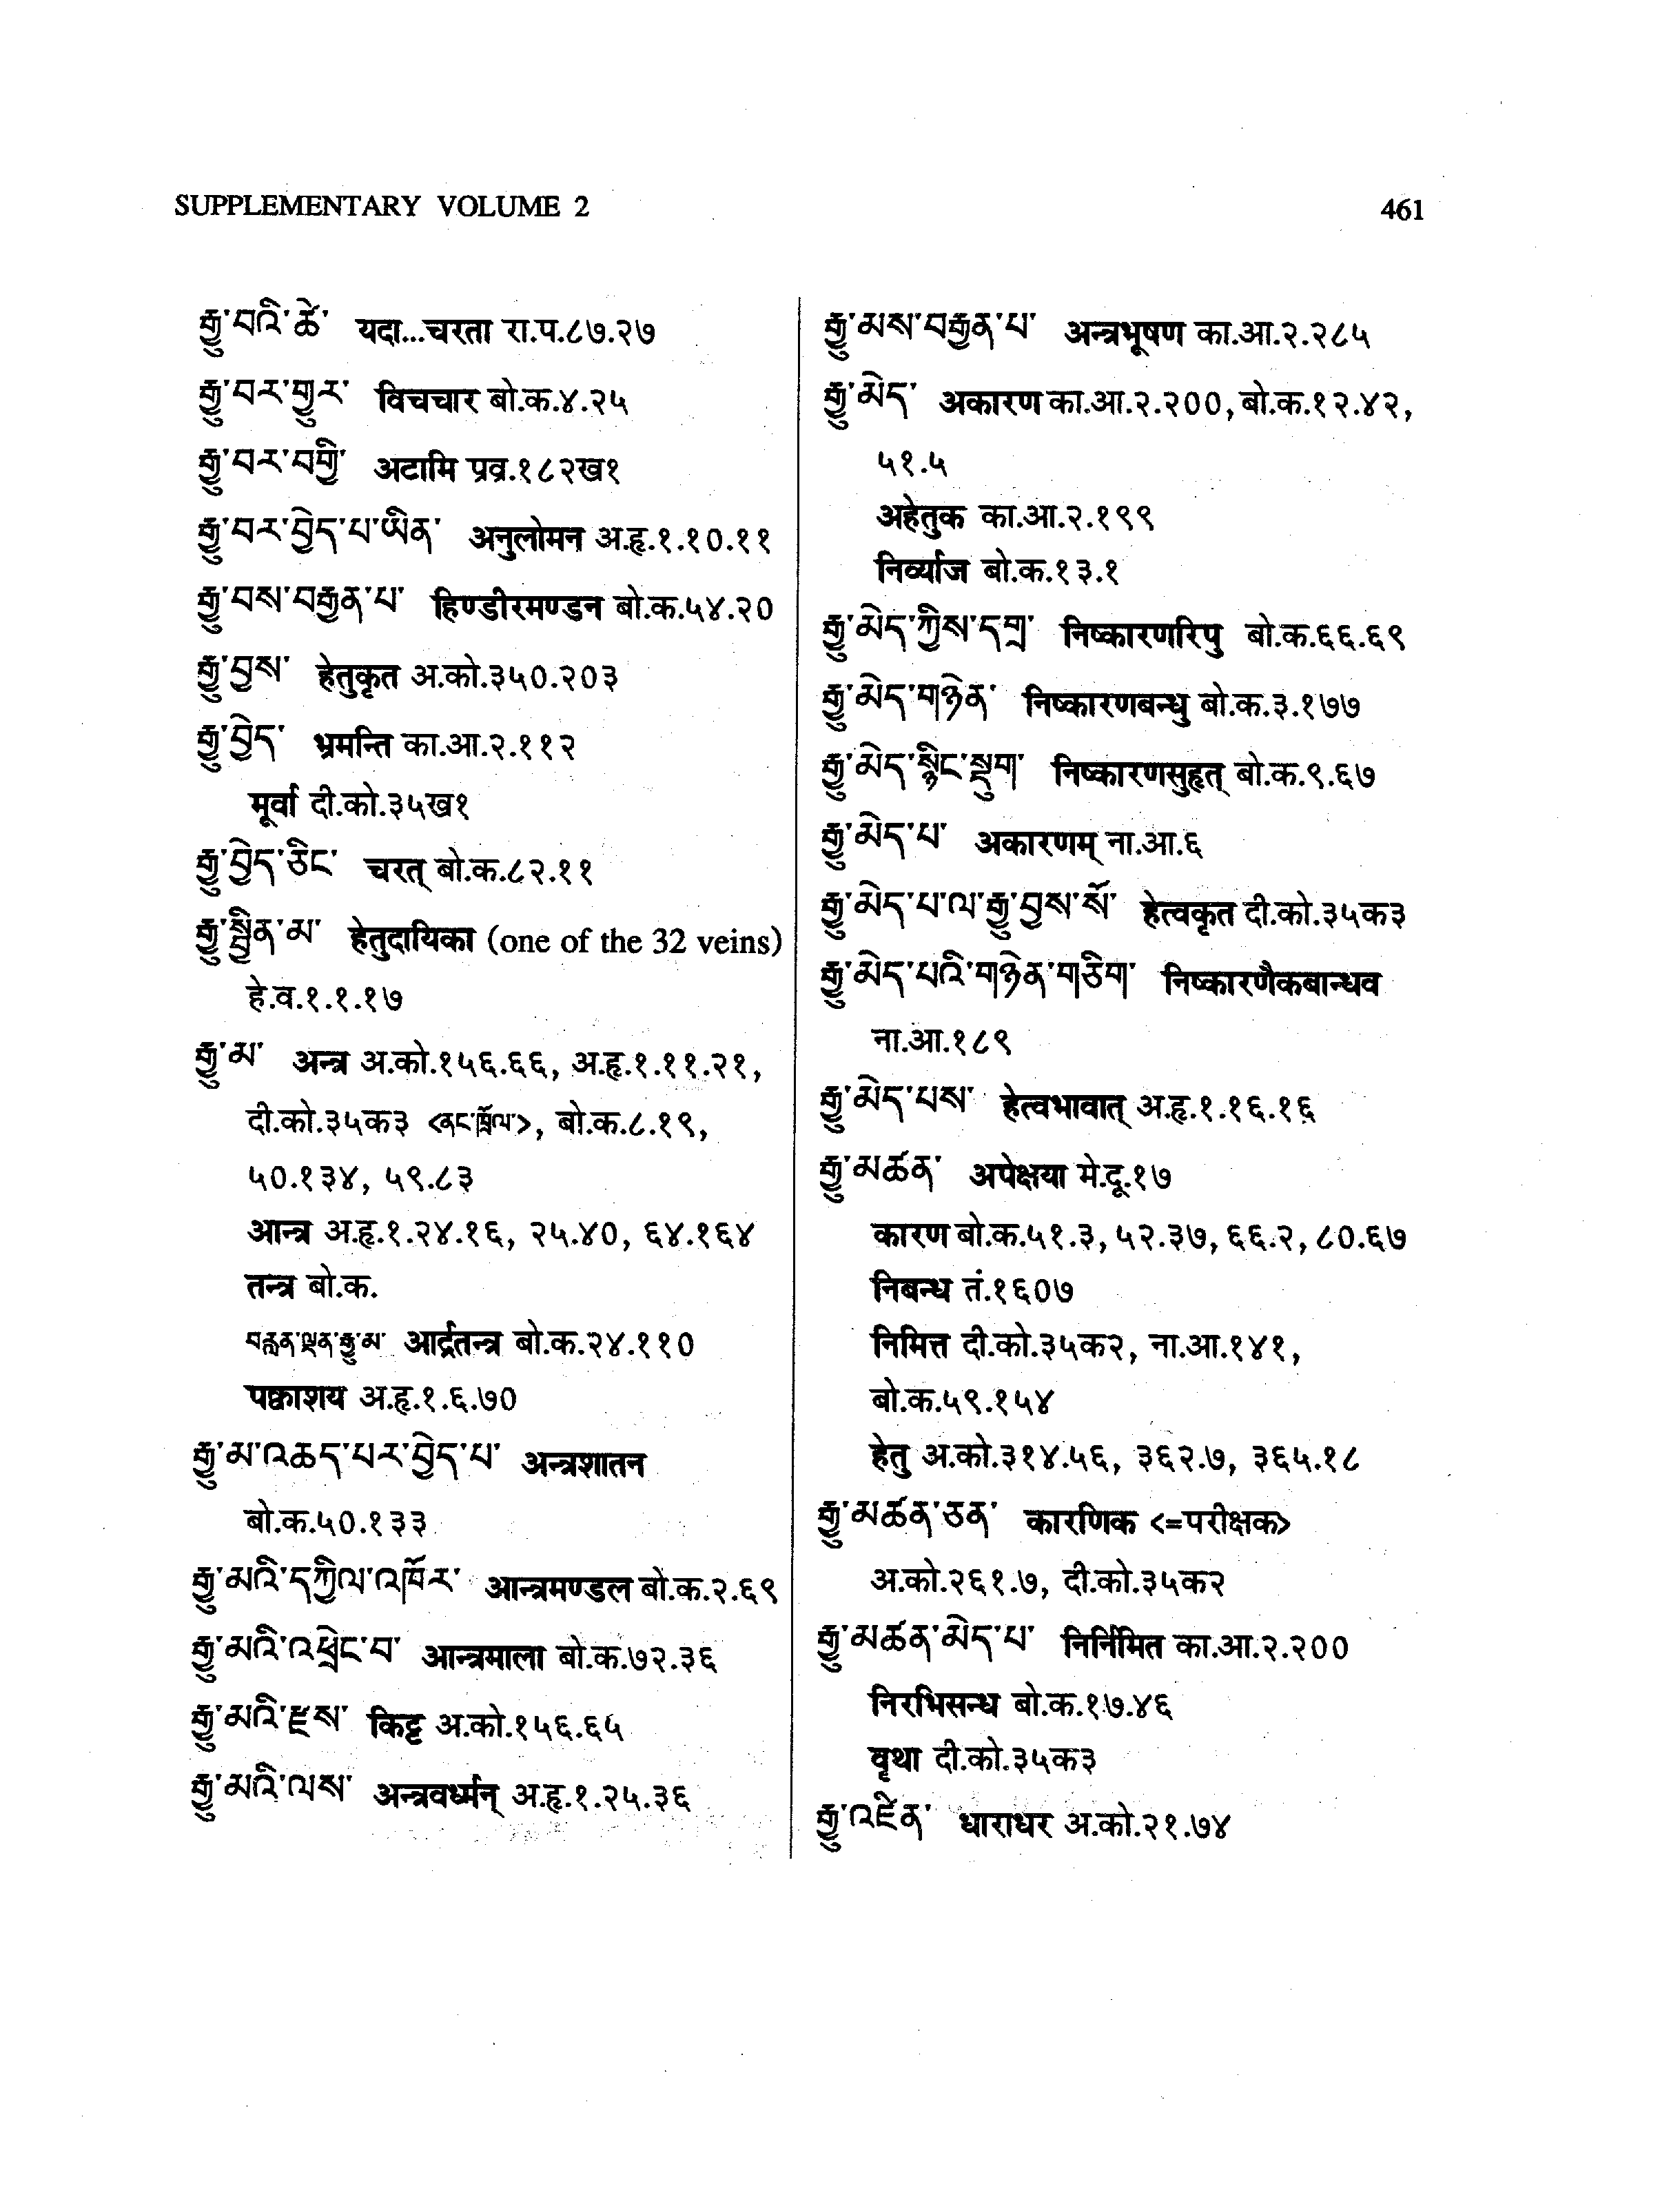 SUPPLEMENTARY VOLUME 2 461
རྒྱུ་བའི་ཚེ་ यदा...चरता रा.प.८७.२७
རྒྱུ་བར་གྱུར་ विचचार बो.क.४.२५
རྒྱུ་བར་བགྱི་ अटामि प्रव्र.१८२ख१
རྒྱུ་བར་བྱེད་པ་ཡིན་ अनुलोमन अ.हृ.१.१०.११
རྒྱུ་བས་བརྒྱན་པ་ हिण्डीरमण्डन बो.क.५४.२०
རྒྱུ་བྱས་ हेतुकृत अ.को.३५०.२०३
རྒྱུ་བྱེད་ भ्रमन्ति का.आ.२.११२
मूर्वा दी.को.३५ख१
རྒྱུ་བྱེད་ཅིང་ चरत् बो.क.८२.११
རྒྱུ་སྦྱིན་མ་ हेतुदायिका (one of the 32 veins)
हे.व.१.१.१७
རྒྱུ་མ་ अन्त्र अ.को.१५६.६६, अ.हृ.१.११.२१,
दी.को.३५क३ <ནང་ཁྲོལ་>, बो.क.८.१९,
५०.१३४, ५९.८३
आन्त्र अ.हृ.१.२४.१६, २५.४०, ६४.१६४
तन्त्र बो.क.
བརླན་ལྡན་རྒྱུ་མ་ आर्द्रतन्त्र बो.क.२४.११०
पक्वाशय अ.हृ.१.६.७०
རྒྱུ་མ་འཆད་པར་བྱེད་པ་ अन्त्रशातन
बो.क.५०.१३३
རྒྱུ་མའི་དཀྱིལ་འཁོར་ आन्त्रमण्डल बो.क.२.६९
རྒྱུ་མའི་འཕྲེང་བ་ आन्त्रमाला बो.क.७२.३६
རྒྱུ་མའི་རྫས་ किट्ट अ.को.१५६.६५
རྒྱུ་མའི་ལས་ अन्त्रवर्ध्मन् अ.हृ.१.२५.३६
རྒྱུ་མས་བརྒྱན་པ་ अन्त्रभूषण का.आ.२.२८५
རྒྱུ་མེད་ अकारण का.आ.२.२००, बो.क.१२.४२,
५१.५
अहेतुक का.आ.२.१९९
निर्व्याज बो.क.१३.१
རྒྱུ་མེད་ཀྱིས་དགྲ་ निष्कारणरिपु बो.क.६६.६९
རྒྱུ་མེད་གཉེན་ निष्कारणबन्धु बो.क.३.१७७
རྒྱུ་མེད་སྙིང་སྡུག་ निष्कारणसुहृत् बो.क.९.६७
རྒྱུ་མེད་པ་ अकारणम् ना.आ.६
རྒྱུ་མེད་པ་ལ་རྒྱུ་བྱས་སོ་ हेत्वकृत दी.को.३५क३
རྒྱུ་མེད་པའི་གཉེན་གཅིག་ निष्कारणैकबान्धव
ना.आ.१८९
རྒྱུ་མེད་པས་ हेत्वभावात् अ.हृ.१.१६.१६
རྒྱུ་མཚན་ अपेक्षया मे.दू.१७
कारण बो.क.५१.३, ५२.३७, ६६.२, ८०.६७
निबन्ध तं.१६०७
निमित्त दी.को.३५क२, ना.आ.१४१,
बो.क.५९.१५४
हेतु अ.को.३१४.५६, ३६२.७, ३६५.१८
རྒྱུ་མཚན་ཅན་ कारणिक <=परीक्षक>
अ.को.२६१.७, दी.को.३५क२
རྒྱུ་མཚན་མེད་པ་ निर्निमित का.आ.२.२००
निरभिसन्ध बो.क.१७.४६
वृथा दी.को.३५क३
རྒྱུ་འཛིན་ धाराधर अ.को.२१.७४